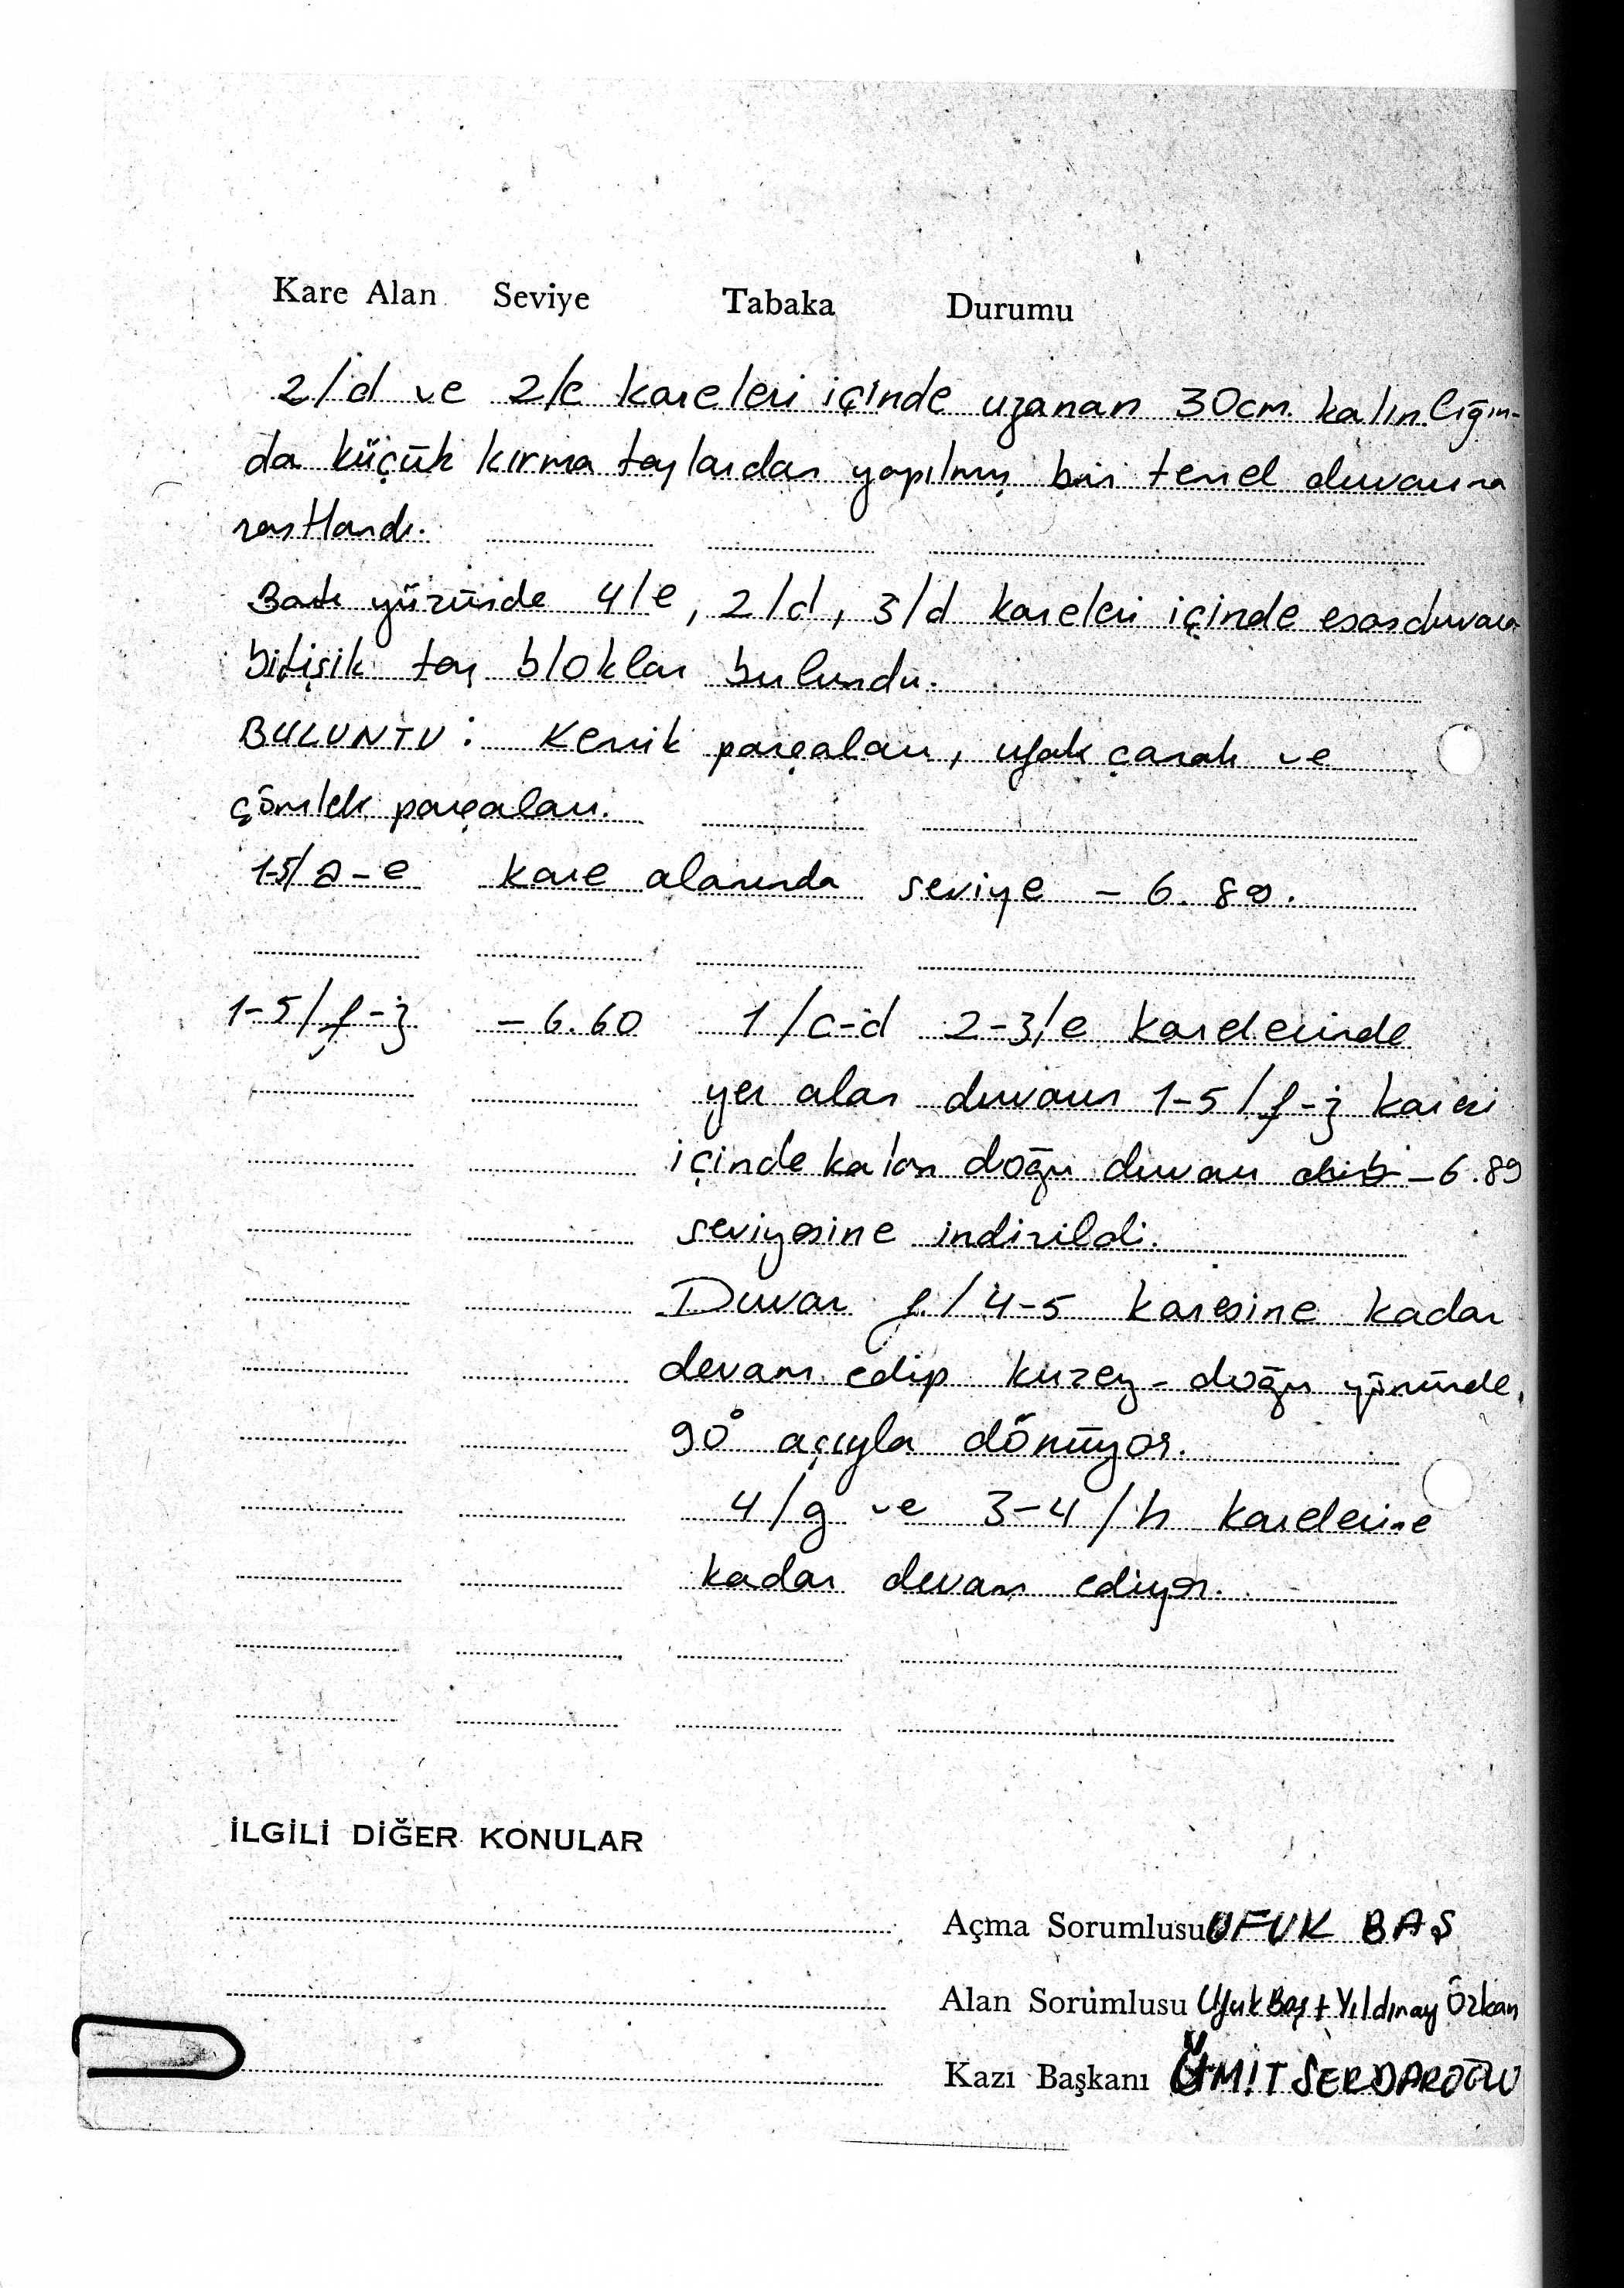 Kare Alan Seviye Tabaka Durumu
2/d ve 2/e kareleri içinde uzanan 30cm. kalınlığın-
da küçük kırma taşlardan yapılmış bir temel duvarına
rastlandı.
Batı yüzünde 4/e, 2/d, 3/d kareleri içinde esas duvara
bitişik taş bloklar bulundu.
BULUNTU: Kemik parçaları, ufak çanak ve
çömlek parçaları.
1-5/a-e kare alanında seviye - 6.80.
1-5/f-j -6.60 1/c-d 2-3/e karelerinde
yer alan duvarın 1-5/f-j karesi
içinde kalan doğu duvarı -6.89
seviyesine indirildi.
Duvar f/4-5 karesine kadar
devam edip kuzey-doğu yönünde,
90° açıyla dönüyor.
4/g ve 3-4/h karelerine
kadar devam ediyor.
İLGİLİ DİĞER KONULAR
Açma Sorumlusu UFUK BAŞ
Alan Sorumlusu Ufuk Baş + Yıldıray Özkan
Kazı Başkanı ÜMİT SERDAROĞLU